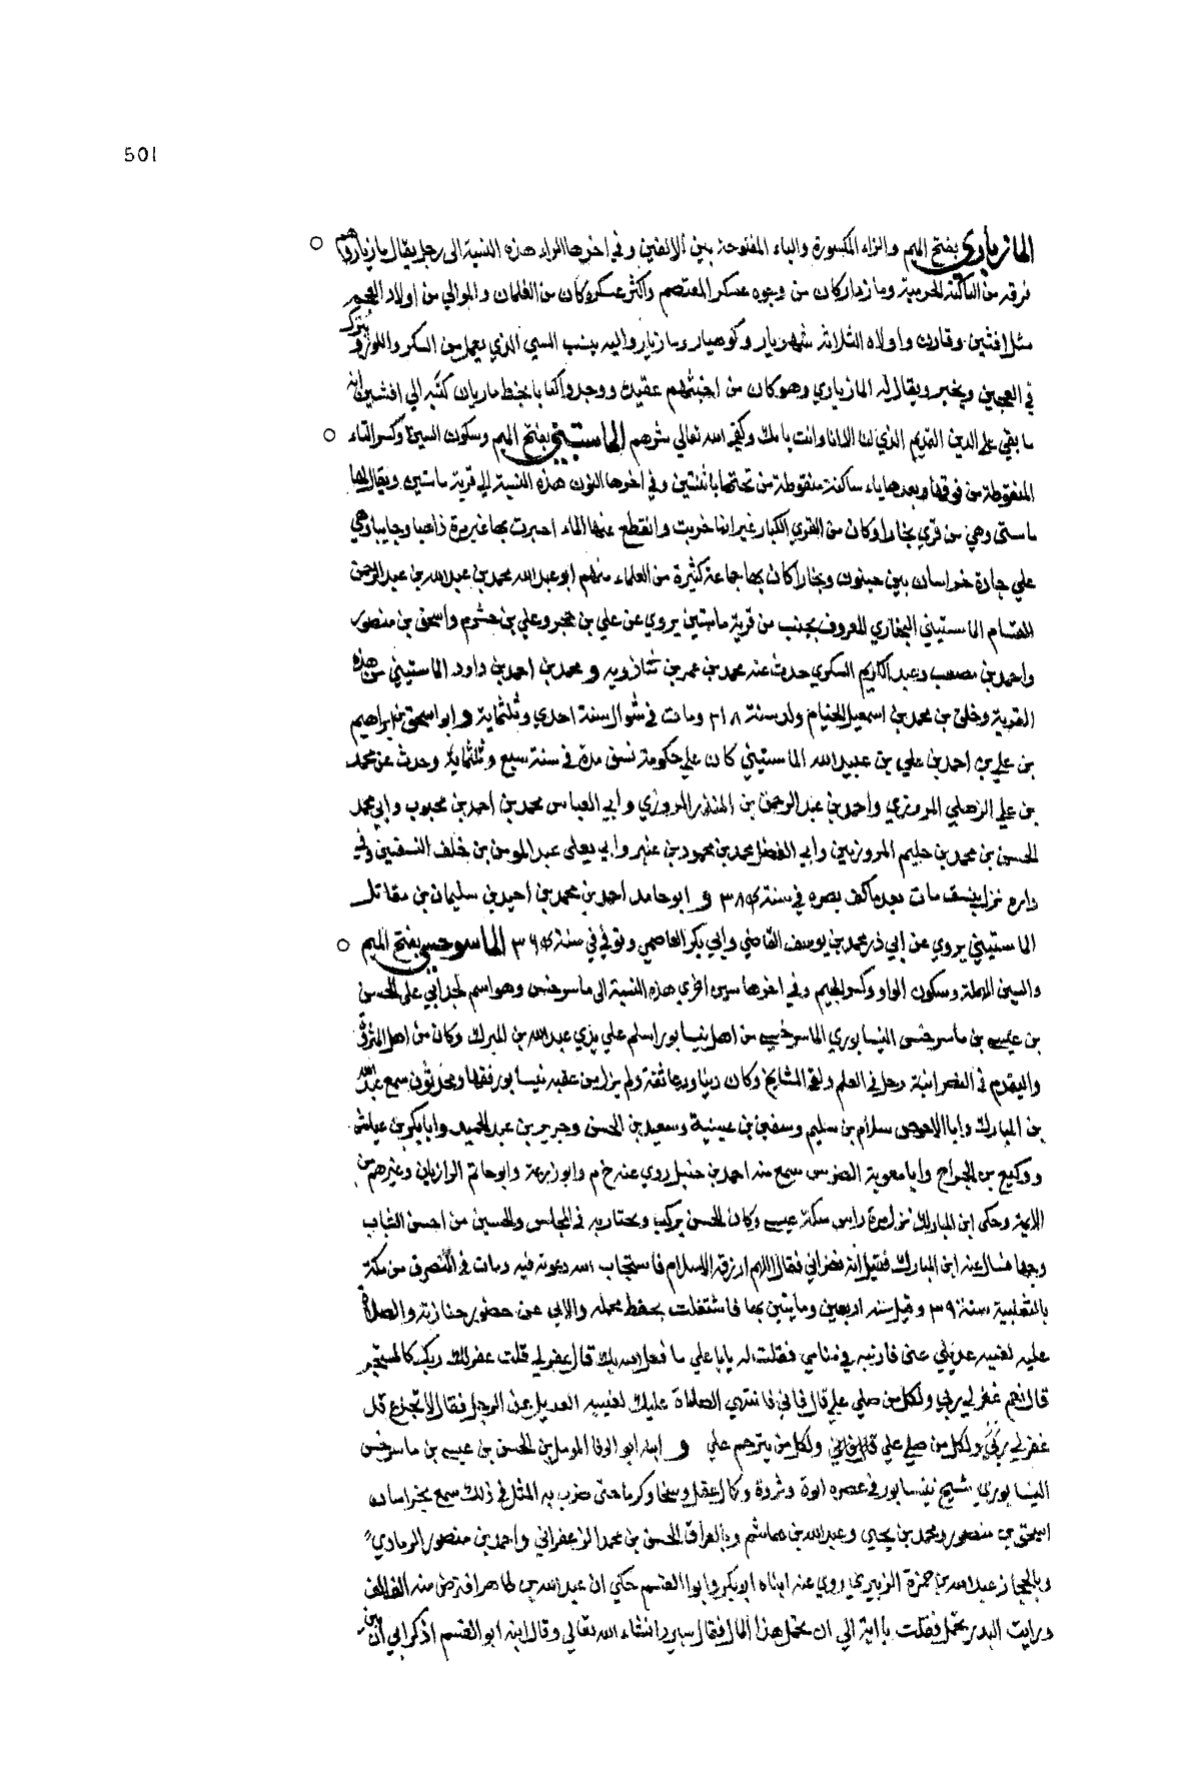 501
المازياري بفتح الميم والزاء المكسورة والياء المفتوحة بين الالفين وفي اخرها الراء هذه النسبة الى رجل يقال مازيار وهم
فرقة من البابكية الخرمية ومازيار كان من وجوه عسكر المعتصم واكثر عسكره كان من الغلمان والموالي من اولاد العجم
مثل افشين وقارن واولاده الثلاثة شهريار وكوهيار ومازيار واليه ينسب السي الذي يعمل من السكر واللوز و
في العجين ويخبر ويقال له المازياري وهو كان من اخبثهم عقيدة ووجدوا كتابا بخط مازيار كتبه الي افشين انه
ما بقي على الدين القديم الذي لنا الا انا وانت بابك وكفى الله تعالي شرهم الماستيني بفتح الميم وسكون السين وكسر التاء
المنقوطة من فوقها وبعدها ياء ساكنة منقوطة من تحتها باثنتين وفي اخرها النون هذه النسبة الي قرية ماستين ويقال لها
ماستى وهي من قري بخارا وكان من القري الكبار غير انها خربت وانقطع عنها الماء اجبرت بها غير مرة ذاهبا وجايبا وهي
علي جادة خراسان بين جيحون وبخارا كان بها جماعة كثيرة من العلماء منهم ابو عبد الله محمد بن عبد الله بن عبد الرحمن
القسام الماستيني البخاري المعروف بجنب من قرية ماستين يروي عن علي بن حجر وعلي بن خشرم واسحق بن منصور
واحمد بن مصعب وعبد الكريم السكري حدث عنه محمد بن عمر بن شاذويه و محمد بن احمد بن داود الماستيني من هذه
القرية وخلف بن محمد بن اسمعيل الخيام ولد سنة ٢١٨ ومات في شوال سنة احدي وثلثماية و ابو اسحق بن ابراهيم
بن علي بن احمد بن علي بن عبيد الله الماستيني كان علي حكومة نسف مدة في سنة سبع وثلثماية وحدث عن محمد
بن علي الذهلي المروزي واحمد بن عبد الرحمن بن المنذر المروزي وابي العباس محمد بن احمد بن محبوب وابي محمد
الحسن بن محمد بن حليم المروزيين وابي الفضل محمد بن محمود بن عنبر وابي يعلى عبد المومن بن خلف النسفيين وفي
داره نزل بنسف مات بعد ما كف بصره في سنة ٣٨٥ و ابو حامد احمد بن محمد بن احيد بن سليمان بن مقاتل
الماستيني يروي عن ابي ذر محمد بن يوسف القاضي وابي بكر العاصمي وتوفي في سنة ٣٩٥ الماسرجسي بفتح الميم
والسين المهملة وسكون الواو وكسر الجيم وفي اخرها سين اخري هذه النسبة الى ماسرجس وهو اسم لجد ابي علي الحسن
بن عيسى بن ماسرجس النيسابوري الماسرجسي من اهل نيسابور اسلم علي يدي عبد الله بن المبرك وكان من اهل الثروة
واليقدم في النصرانية رحل في العلم ولقي المشايخ وكان دينا ورعا ثقة ولم يزل من عقبه نيسابور فقها ومحدثون سمع عبد الله
بن المبارك وابا الاحوص سلام بن سليم وسفين بن عيينة وسعيد بن الحسن وجرير بن عبد الحميد وابا بكر بن عياش
ووكيع بن الجراح وابا معوية الضرير سمع منه احمد بن حنبل روي عنه خ م وابو زرعة وابو حاتم الرازيان وغيرهم من
الايمة وحكى ابن المبارك نزل مرة راس سكة عيسى وكان الحسن يركب ويجتاز به في المجلس والحسين من احسن الشباب
وجها فسال عنه ابن المبارك فقيل انه نصراني فقال اللهم ارزقه الاسلام فاستجاب الله دعوته فيه ومات في المنصرف من مكة
بالثعلبية سنة ٣٩ وقيل سنة اربعين ومايتين بها فاشتغلت بحفظ محمله والالي عن حضور جنازته والصلاة
عليه لغيبة عديلي عنى فارايته في منامي فقلت له يا با علي ما فعل الله بك قال غفر لي قلت غفر لك ربك كالمستخبر
قال نعم غفر لي ربي ولكل من صلي علي قال فاني فاتتني الصلاة عليك لغيبة العديل عن الرحل فقال لا تجزع قد
غفر لي ربي ولكل من صلي علي ولكل من يترحم علي و ابنه ابو الوفا المومل بن الحسن بن عيسى بن ماسرجس
النيسابوري شيخ نيسابور في عصره ابوة وثروة وكمال عقل وسخا وكرما حتى ضرب به المثل في ذلك سمع بخراسان
اسحق بن منصور ومحمد بن يحيي وعبد الله بن هاشم وبالعراق الحسن بن محمد الزعفراني واحمد بن منصور الرمادي
وبالحجاز عبد الله بن حمزة الزبيري روي عنه ابناه ابو بكر وابو القسم حكي ان عبد الله بن طاهر اقترض منه الف الف
ورايت البدر تحمل فقلت يا ابة الي ان يحمل هذا المال فقال سيرد انشاء الله تعالي وقال ابنه ابو القسم اذكر ابي ان